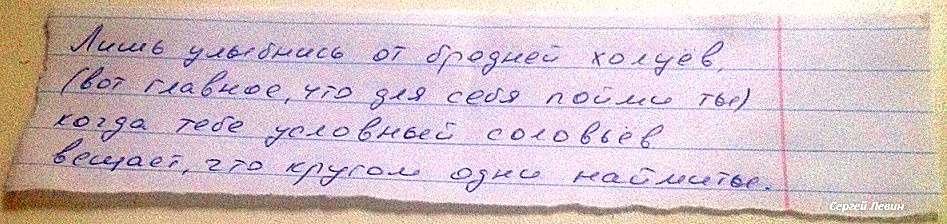 Лишь улыбнись от бродней холуёв,
(вот главное, что для себя пойми ты)
когда тебе условный соловьёв
вещает, что кругом одни наймиты.
Сергей Левин